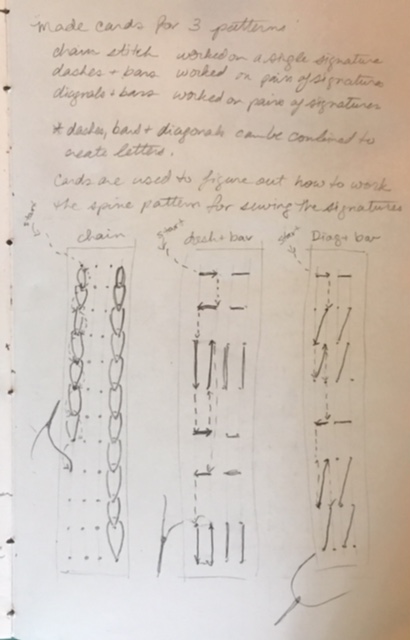 made cards for 3 patterns
chain stitch worked on a single signature
dashes + bars worked on pairs of signatures
diagonals + bars worked on pairs of signatures
* dashes, bars + diagonals can be combined to
create letters.
Cards are used to figure out how to work
the spine pattern for sewing the signatures
start
chain
start
dash + bar
start
Diag + bar